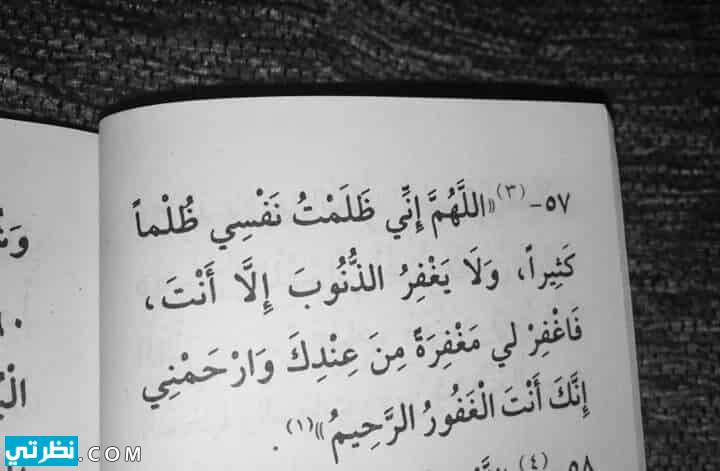 ٥٧- (٣) «اللَّهُمَّ إِنِّي ظَلَمْتُ نَفْسِي ظُلْماً
كَثِيراً، وَلَا يَغْفِرُ الذُّنُوبَ إِلَّا أَنْتَ،
فَاغْفِرْ لِي مَغْفِرَةً مِنَ عِنْدِكَ وَارْحَمْنِي
إِنَّكَ أَنْتَ الْغَفُورُ الرَّحِيمُ»(١).
٥٨- (٤)
نظرتي.COM